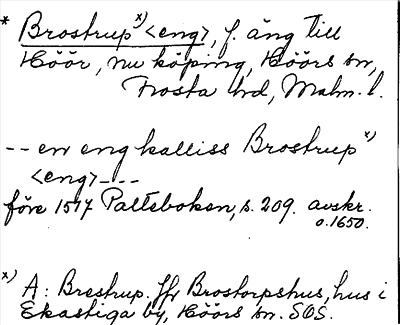 * Brostrup x) <eng>, f. äng till
Höör, nu köping, Höörs sn,
Frosta hd, Malm. l.
-- en eng kalliss Brostrup x)
<eng> ---
före 1517 Palteboken, s. 209. avskr.
o.1650.
x) A: Brestrup. Jfr Brostorpshus, hus i
Ekastiga by, Höörs sn. SOS.